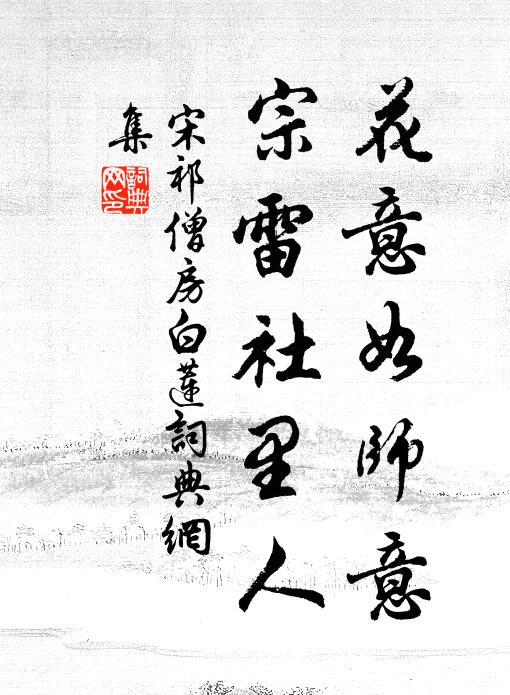 花意如師意
宗雷社里人
宋祁僧房白蓮詞典網
集
詞典
网印